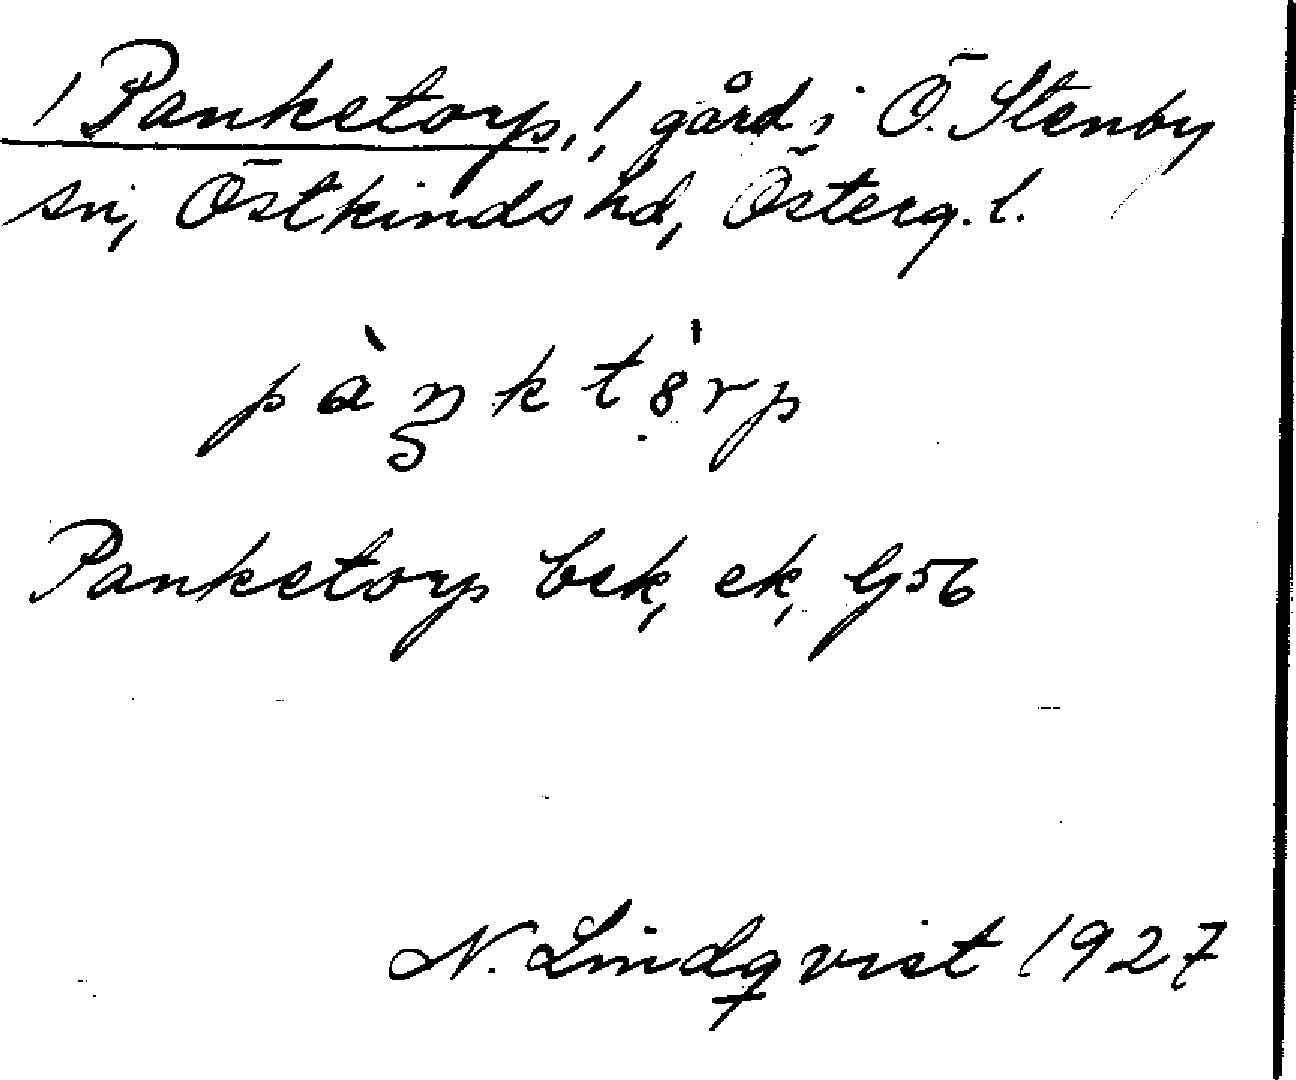 /Panketorp,/ gård i Ö. Stenby
sn, Östkinds hd, Österg. l.
pàŋktȯ́rp
Panketorp bek, ek, G56
N. Lindqvist 1927